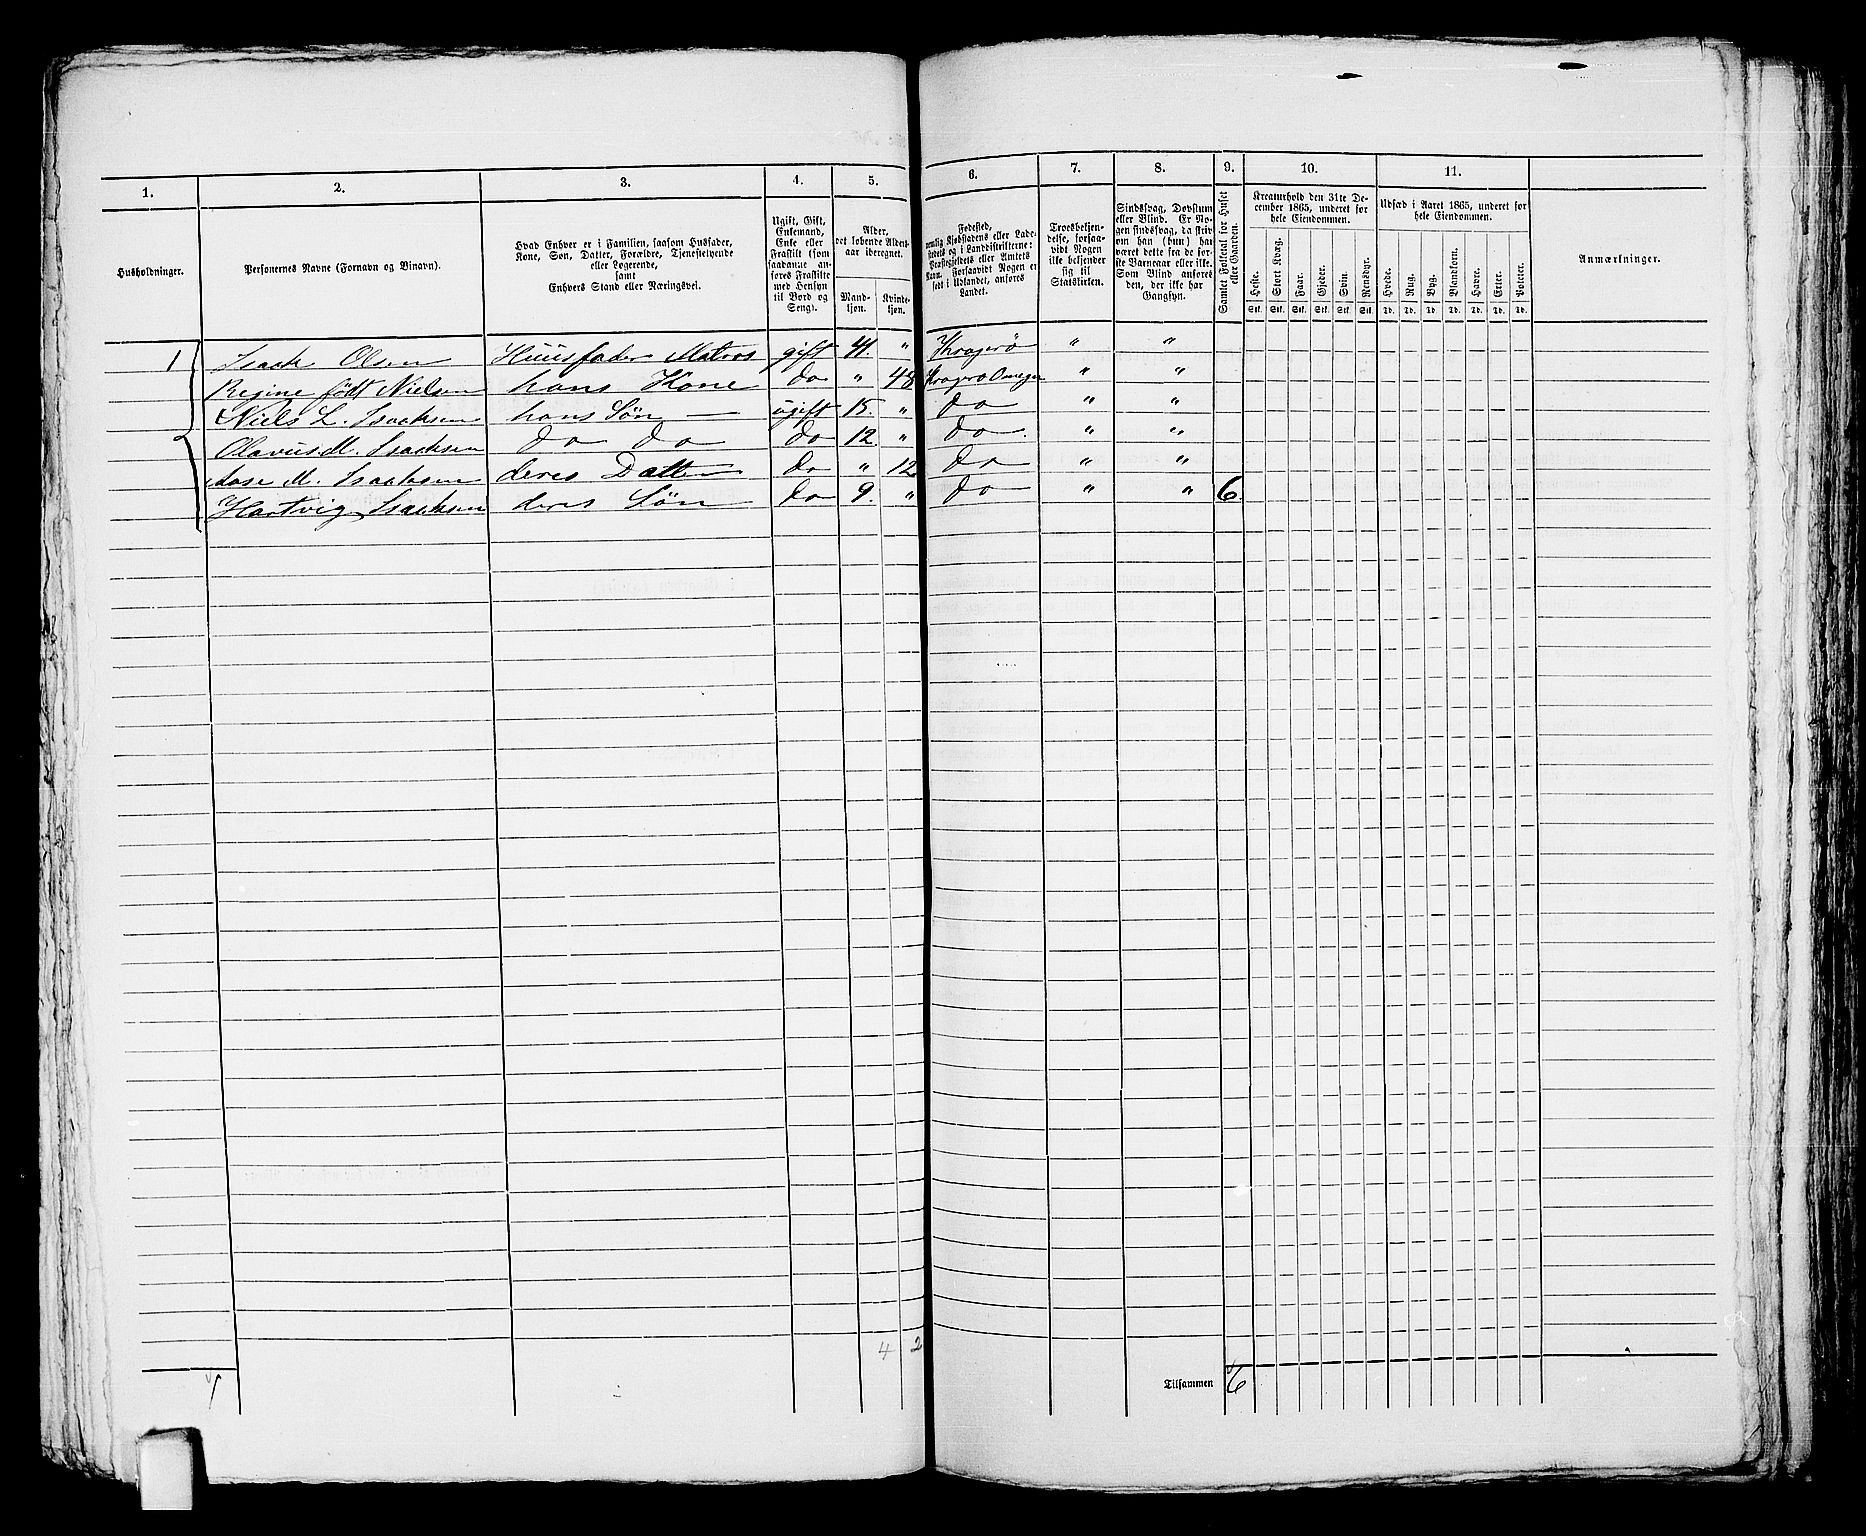 1. 2. 3. 4. 5. 6. 7. 8. 9. 10. 11.
Husholdninger.
Personernes Navne (Fornavn og Binavn).
Hvad Enhver er i Familien, saasom Husfader,
Kone, Søn, Datter, Forældre, Tjenestetyende
eller Logerende,
samt
Enhvers Stand eller Næringsvei.
Ugift, Gift,
Enkemand,
Enke eller
Fraskilt (som
saadanne anføres
Fraskilte
med Hensyn
til Bord og
Seng).
Alder,
det løbende Alders-
aar iberegnet.
Mand-
kjøn.
Kvinde-
kjøn.
Fødested,
nemlig Kjøbstadens eller Lade-
stedets og i Landdistrikterne:
Præstegjeldets eller Amtets
Navn. Forsaavidt Nogen er
født i Udlandet, anføres
Landet.
Troesbekjen-
delse, forsaa-
vidt Nogen
ikke bekjender
sig til
Statskirken.
Sindssvag, Døvstum
eller Blind. Er No-
gen sindssvag, da skriv
om han (hun) har
været dette fra de før-
ste Barneaar eller ikke.
Som Blind anføres
den, der ikke har
Gangsyn.
Samlet Folketal for Huset
eller Gaarden.
Kreaturhold den 31te De-
cember 1865, underet for
hele Eiendommen.
Heste. Stort Kvæg. Faar. Gjeder. Svin. Rensdyr.
Stk. Stk. Stk. Stk. Stk. Stk.
Udsæd i Aaret 1865, underet for
hele Eiendommen.
Hvede. Rug. Byg. Blandkorn. Havre. Erter. Poteter.
Td. Td. Td. Td. Td. Td. Td.
Anmærkninger.
1 Isach Olsen Huusfader Matros gift 41. " Kragerø " "
Regine født Nielsen hans Kone do " 48 Kragerø Omegn " "
Niels L. Isachsen hans Søn ugift 15. " do " "
Olavus M. Isachsen do do do 12. " do " "
M. Isachsen deres Datter do " 12 do " "
Hartvig Isachsen deres Søn do 9. " do " " 6
4 2
1 Tilsammen 6